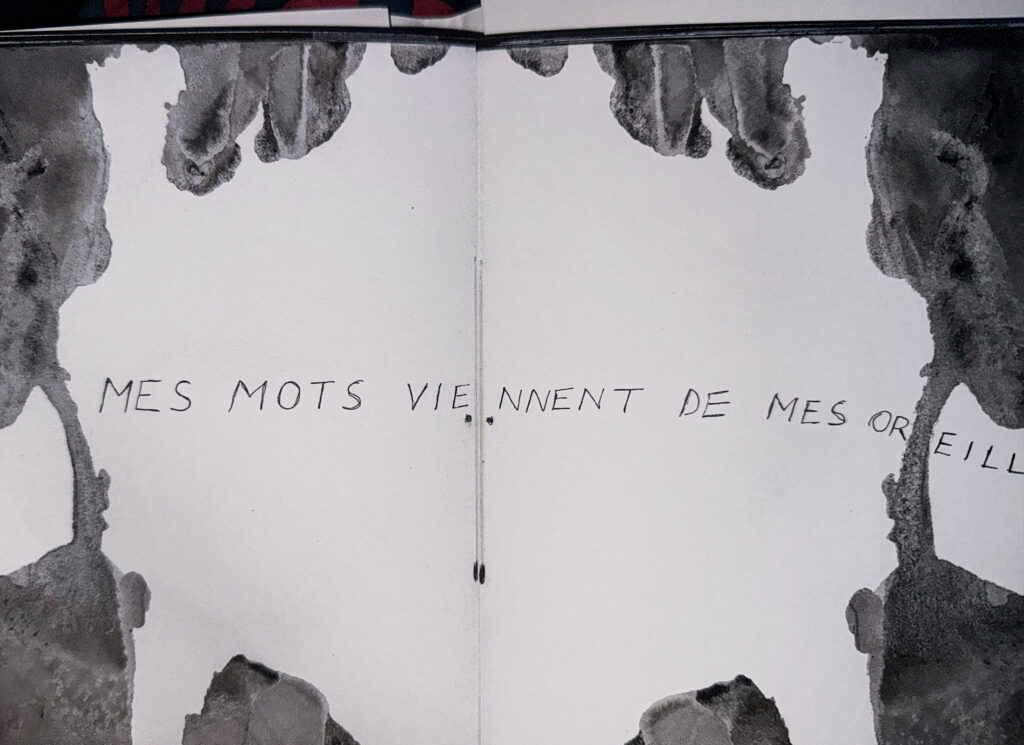 MES MOTS VIENNENT DE MES OREILL